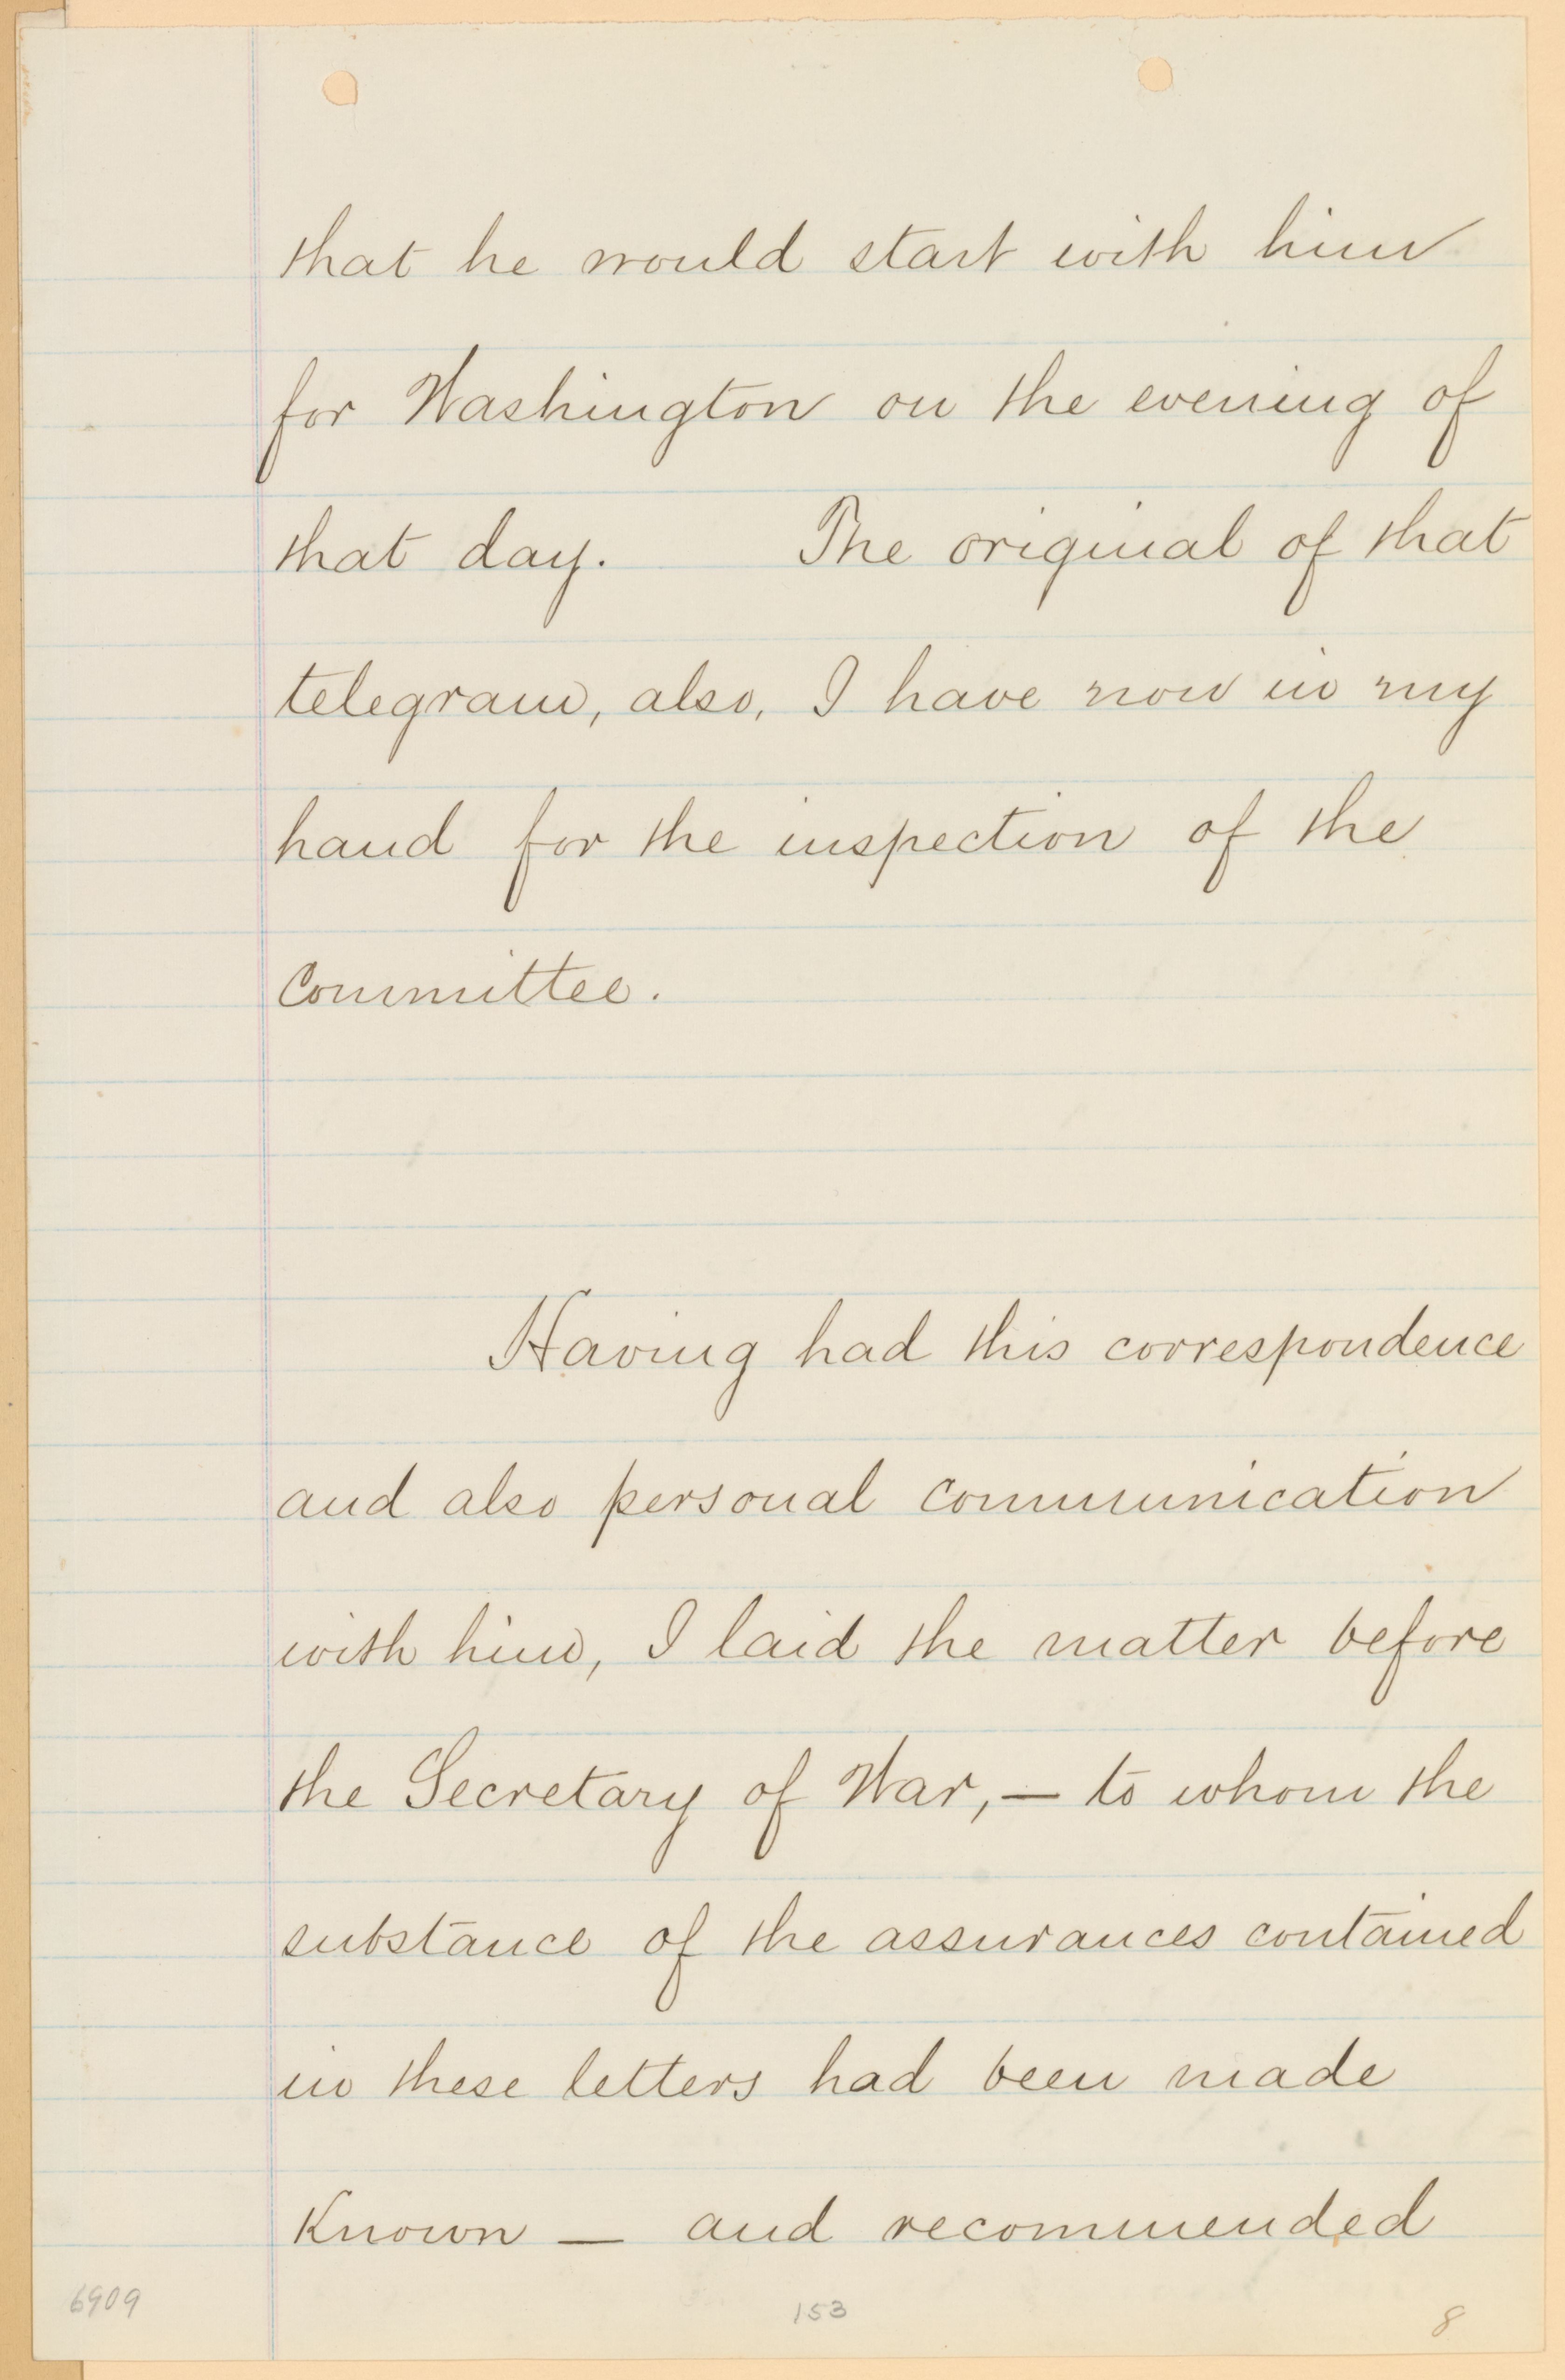 that he would start with him
for Washington on the evening of
that day. The original of that
telegram, also, I have now in my
hand for the inspection of the
Committee.
Having had this correspondence
and also personal communication
with him, I laid the matter before
the Secretary of War, — to whom the
substance of the assurances contained
in these letters had been made
Known — and recommended
6909
153
8